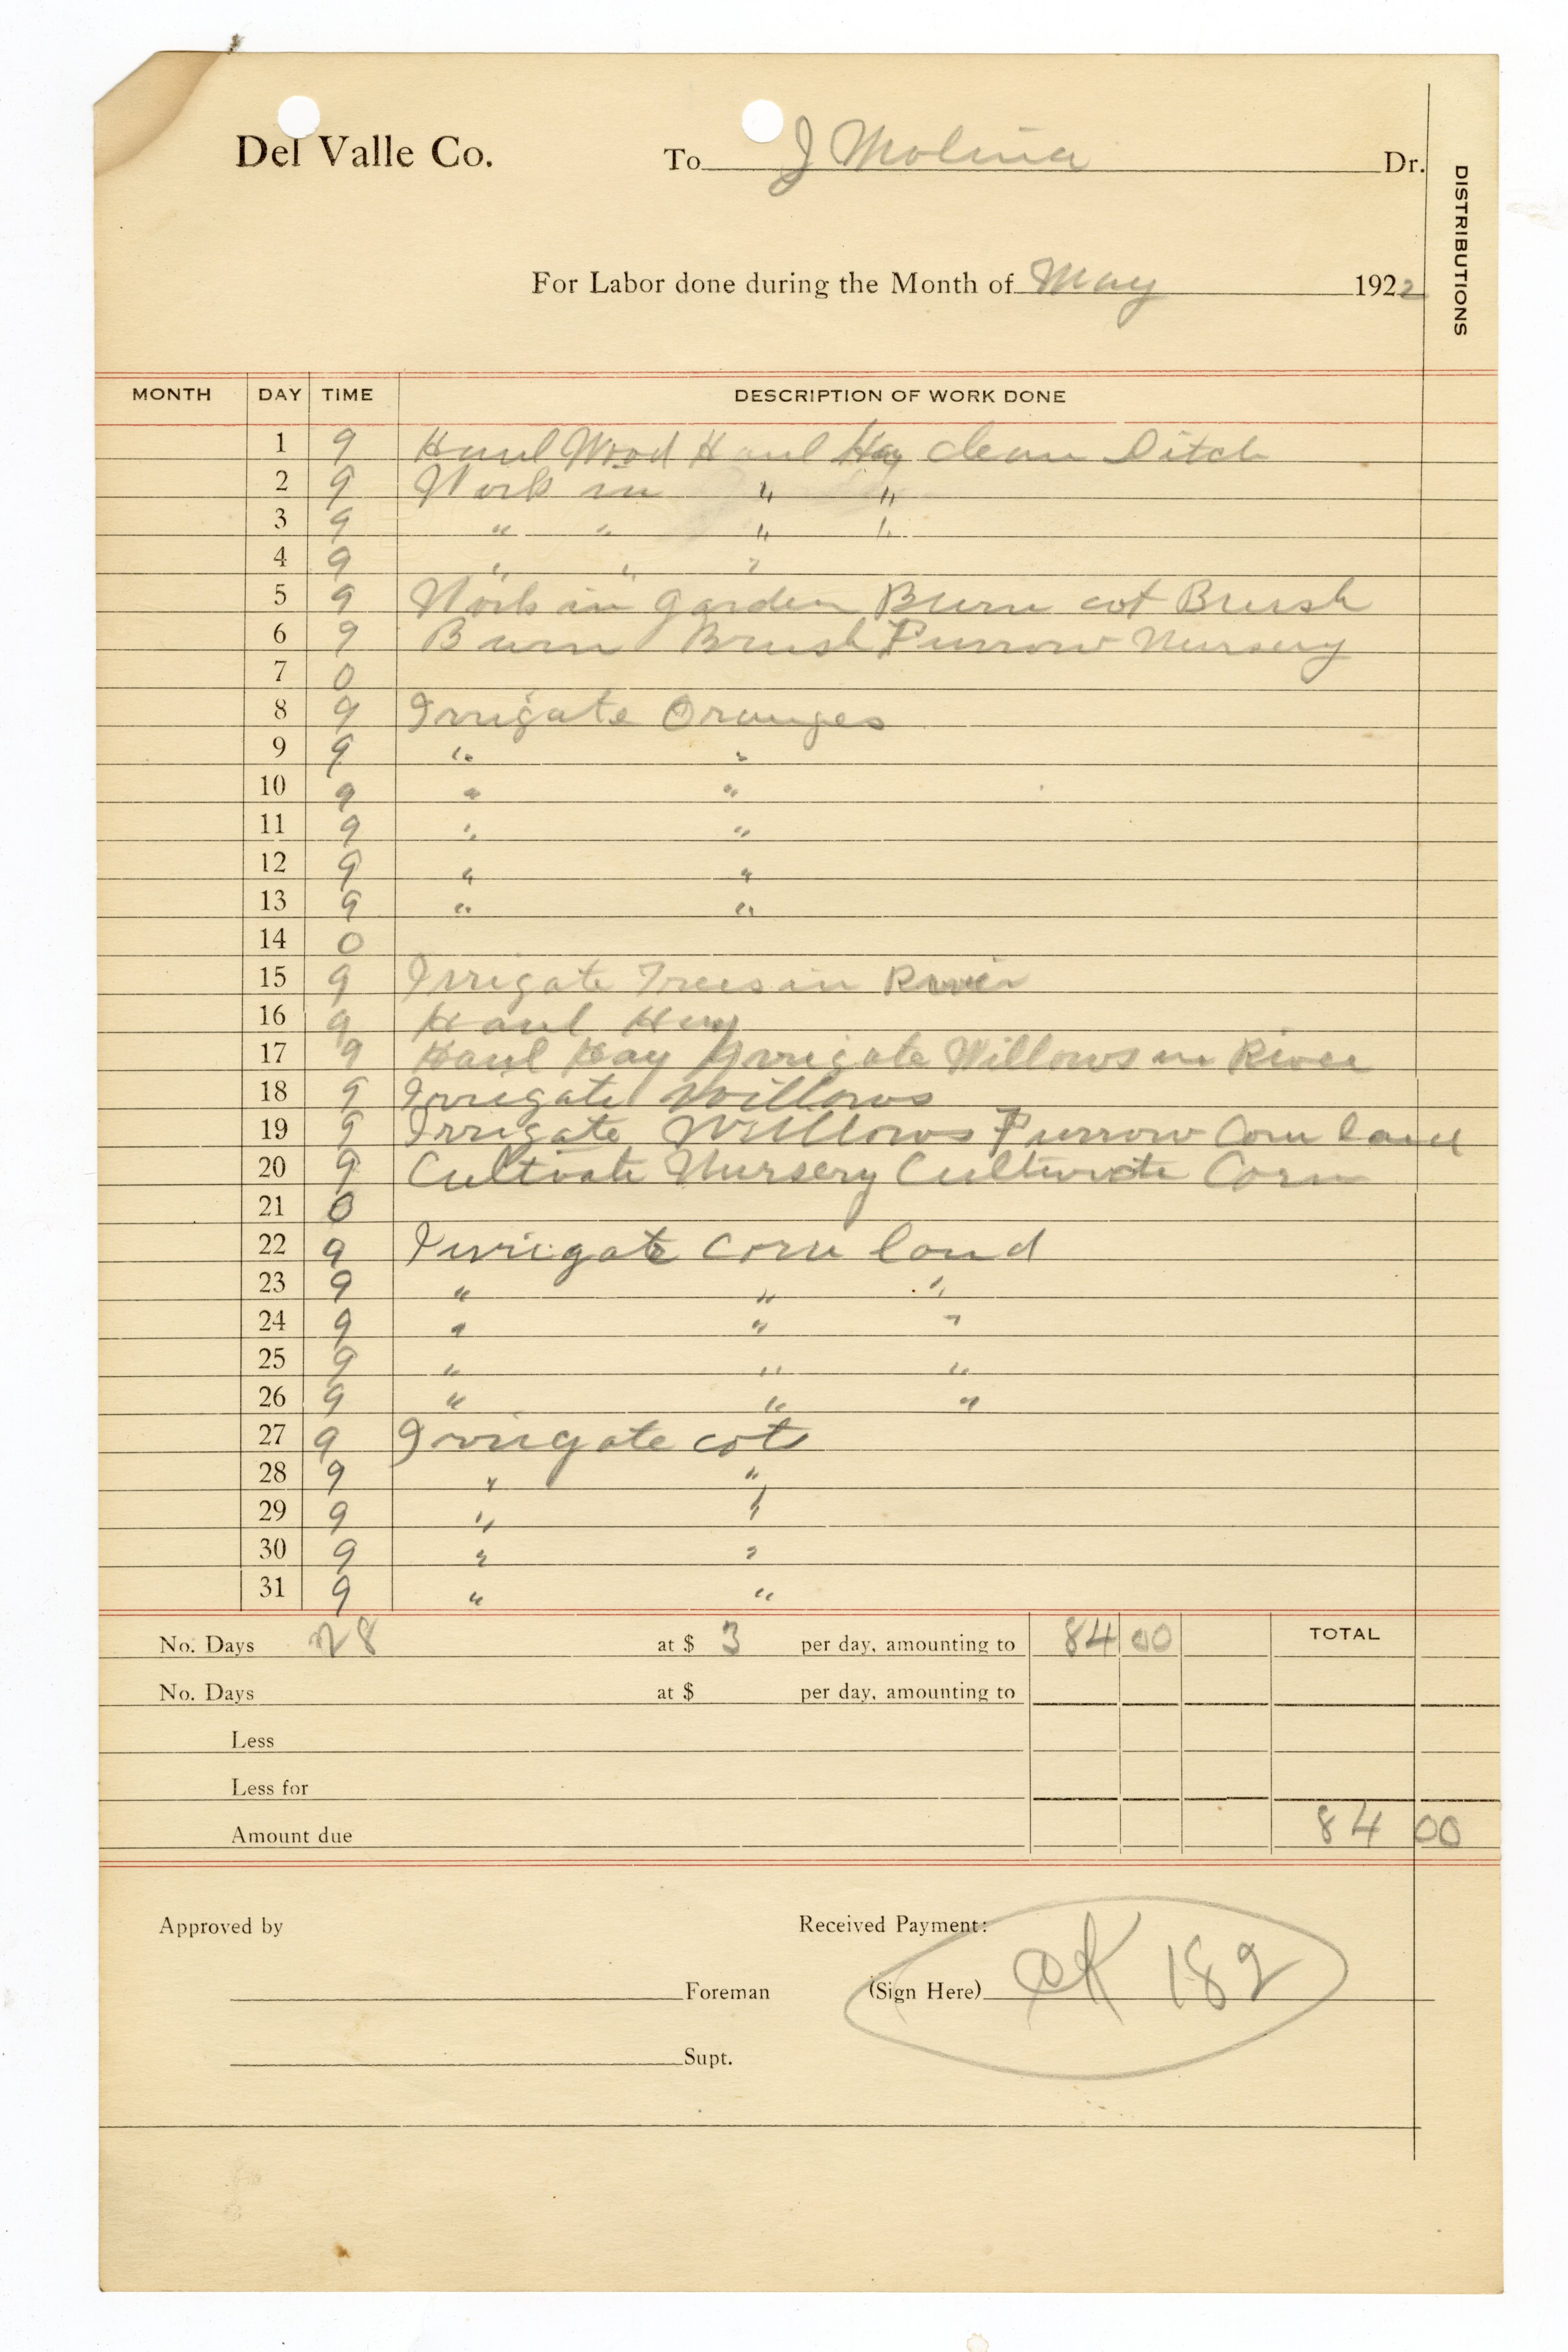 Del Valle Co. To J Molina Dr.
DISTRIBUTIONS
For Labor done during the Month of May 1922
MONTH DAY TIME DESCRIPTION OF WORK DONE
1 9 Haul Wood Haul Hay clean Ditch
2 9 Work in " "
3 9 " " " "
4 9 " " "
5 9 Work in garden Burn cot Brush
6 9 Burn Brush Furrow Nursery
7 0
8 9 Irrigate Oranges
9 9 " "
10 9 " "
11 9 " "
12 9 " "
13 9 " "
14 0
15 9 Irrigate Trees in River
16 9 Haul Hay
17 9 Haul Hay Irrigate Willows in River
18 9 Irrigate Willows
19 9 Irrigate Willlows Furrow Corn land
20 9 Cultivate Nursery Cultivate Corn
21 0
22 9 Irrigate corn land
23 9 " " "
24 9 " " "
25 9 " " "
26 9 " " "
27 9 Irrigate cots
28 9 " "
29 9 " "
30 9 " "
31 9 " "
No. Days 28 at $ 3 per day, amounting to 84 00 TOTAL
No. Days at $ per day, amounting to
Less
Less for
Amount due 84 00
Approved by Received Payment:
Foreman (Sign Here) CK 182
Supt.